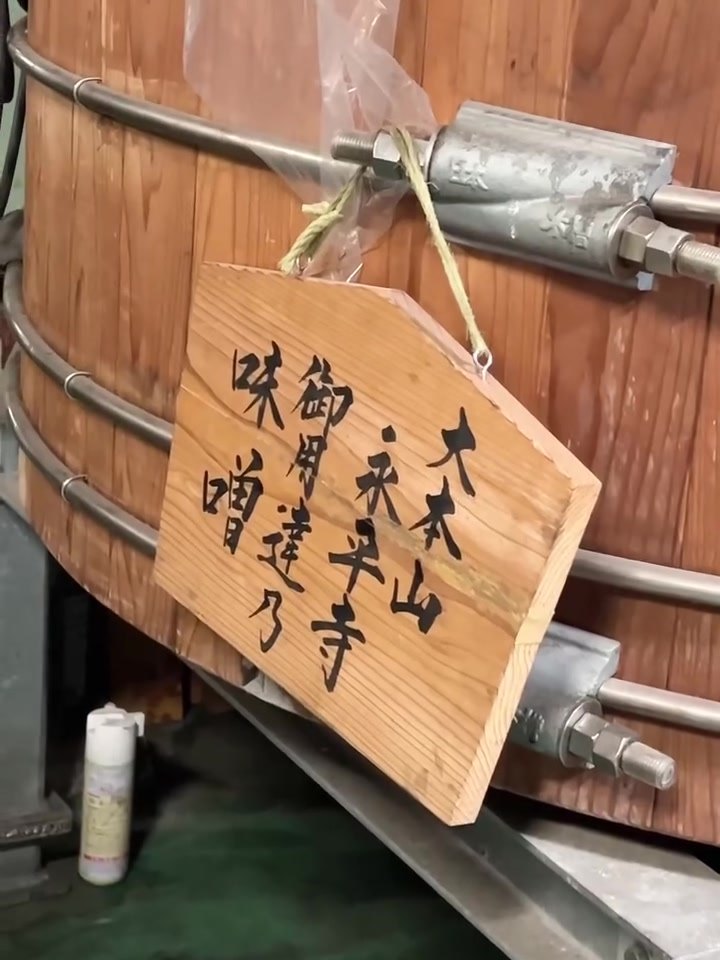 大本山
永平寺
御用達乃
味噌